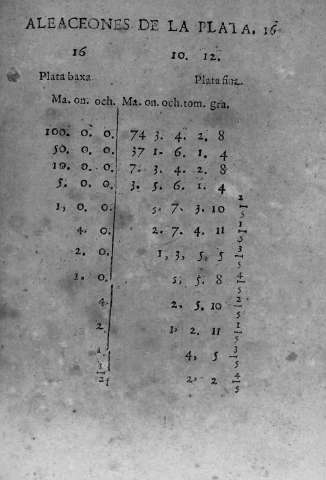 ALEACEONES DE LA PLATA. 16
16 10. 12.
Plata baxa. Plata fina.
Ma. on. och. Ma. on. och. tom. gra.
100. 0. 0. 74 3. 4. 2. 8
50. 0. 0. 37 1. 6. 1. 4
10. 0. 0. 7. 3. 4. 2. 8
5. 0. 0. 3. 5. 6. 1. 4
1, 0. 0. 5. 7. 3. 10 2/5
4. 0. 2. 7. 4. 11 1/5
2. 0. 1, 3, 5, 5 3/5
1. 0. 5, 5. 8 4/5
4. 2. 5. 10 2/5
2. 1. 2. 11 1/5
1. 4, 5 3/5
2. 2 4/5